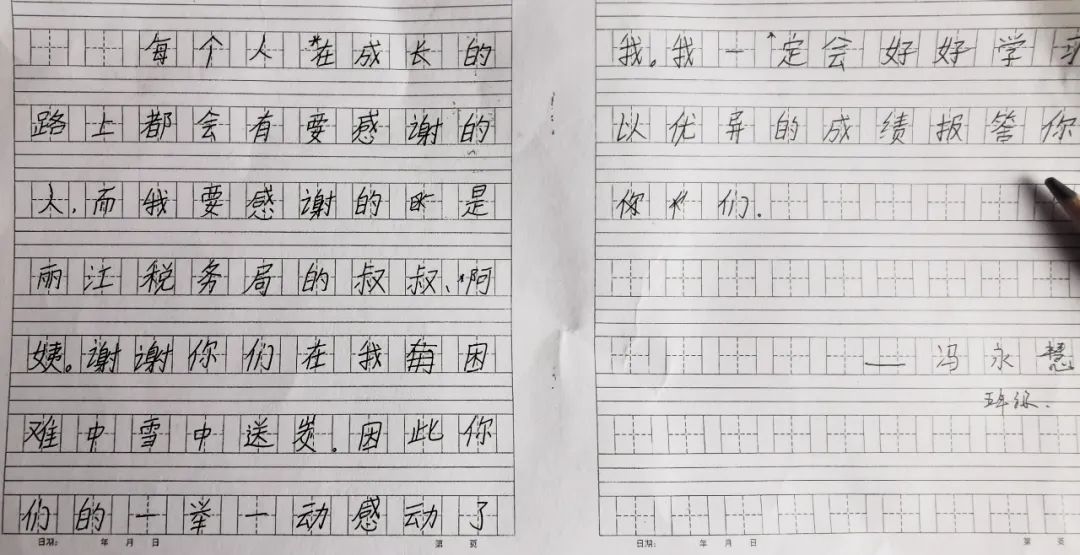 每个人在成长的
路上都会有要感谢的
人,而我要感谢的是
丽江税务局的叔叔、啊
姨。谢谢你们在我困
难中雪中送炭。因此你
们的一举一动感动了
日期: 年 月 日 第 页
我。我一定会好好学
以优异的成绩报答你
你们.
——冯永慧
五年级.
日期: 年 月 日 第 页